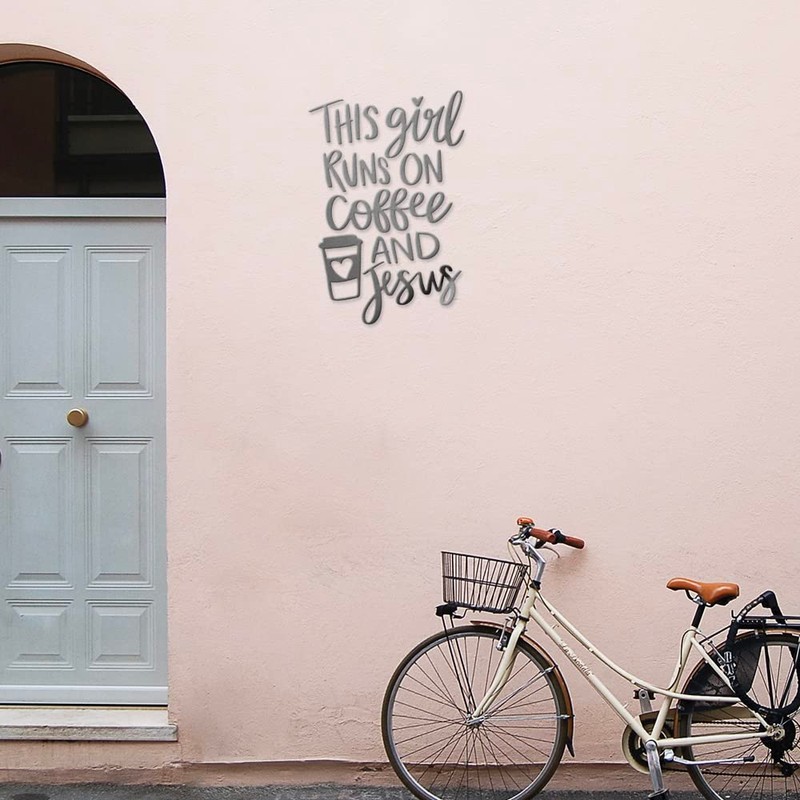 THIS girl
RUNS ON
Coffee
AND
Jesus